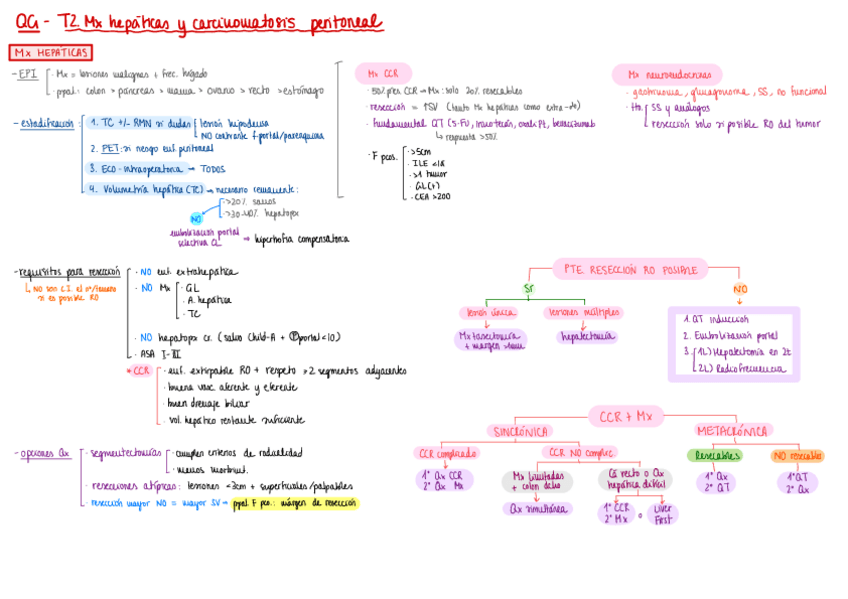 QG - T2. Mx hepáticas y carcinomatosis peritoneal
MX HEPÁTICAS
- EPI
· Mx = lesiones malignas + frec. hígado
· ppal: colon > páncreas > mama > ovario > recto > estómago
- estadificación:
1. TC +/- RMN si dudas
lesión hipodensa
NO contraste f portal/parénquima
2. PET: si riesgo enf. peritoneal
3. Eco-intraoperatoria → TODOS
4. Volumetría hepática (TC) → necesario remanente:
· >20% sanos
· >30-40% hepatopx
NO
embolización portal
selectiva → hipertrofia compensatoria
Mx CCR
· 50% ptes CCR → Mx: solo 20% resecables
· resección = ↑SV (tanto Mx hepáticas como extra-)
· fundamental QT (5-FU, irinotecán, oxaliPt, bevacizumab)
↳ respuesta >50%
· F pcos.
· >5cm
· ILE <1a
· >1 tumor
· GL(+)
· CEA >200
Mx neuroendocrinas
· gastrinoma, glucagonoma, SS, no funcional
· tto.
SS y análogos
resección solo si posible R0 del tumor
- requisitos para resección
↳ NO son C.I. el nº/tamaño
si es posible R0
· NO enf. extrahepática
· NO Mx
· GL
· A. hepática
· TC
· NO hepatopx cr. (salvo Child-A + Pportal <10)
· ASA I-III
* CCR
· enf. extirpable R0 + respeto >2 segmentos adyacentes
· buena vasc. aferente y eferente
· buen drenaje biliar
· vol. hepático restante suficiente
PTE. RESECCIÓN R0 POSIBLE
SÍ
NO
lesión única
lesiones múltiples
Mxtasectomía
+ margen >1cm
hepatectomía
1. QT inducción
2. Embolización portal
3. 1L) Hepatectomía en 2t
2L) Radiofrecuencia
- opciones Qx
· segmentectomías
· cumplen criterios de radicalidad
· menos morbimort.
· resecciones atípicas: lesiones <3cm + superficiales/palpables
· resección mayor NO = mayor SV → ppal. F pco.: márgen de resección
CCR + Mx
SINCRÓNICA
METACRÓNICA
CCR complicado
CCR NO complic.
Resecables
NO resecables
1º Qx CCR
2º Qx Mx
Mx limitadas
+ colon dcho
Cá recto o Qx
hepática difícil
1º Qx
2º QT
1º QT
2º Qx
Qx simultánea
1º CCR
2º Mx
o
Liver
First